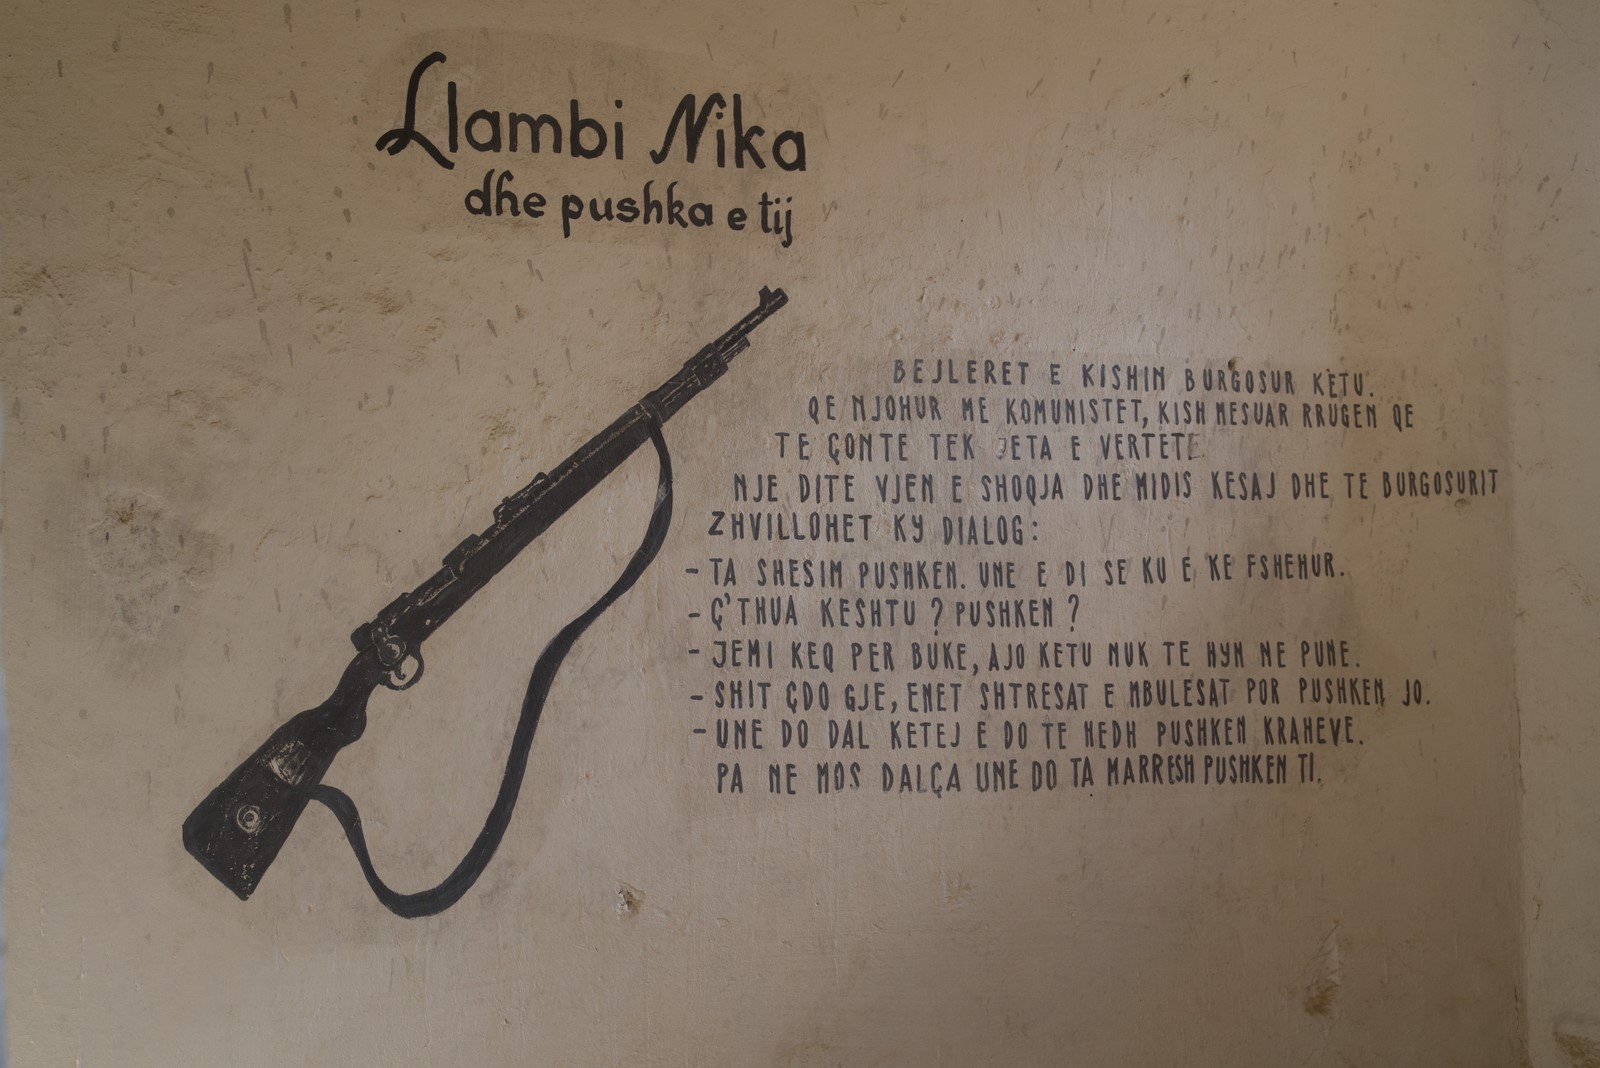 Llambi Nika
dhe pushka e tij
BEJLERET E KISHIN BURGOSUR KETU.
QE NJOHUR ME KOMUNISTET, KISH MESUAR RRUGEN QE
TE ÇONTE TEK JETA E VERTETE
NJE DITE VJEN E SHOQJA DHE MIDIS KESAJ DHE TE BURGOSURIT
ZHVILLOHET KY DIALOG:
- TA SHESIM PUSHKEN. UNE E DI SE KU E KE FSHEHUR.
- Ç'THUA KESHTU? PUSHKEN?
- JEMI KEQ PER BUKE, AJO KETU NUK TE HYN NE PUNE.
- SHIT ÇDO GJE, EDHE SHTRESAT E MBULESAT POR PUSHKEN JO.
- UNE DO DAL KETEJ E DO TE HEDH PUSHKEN KRAHEVE.
PA NE MOS DALÇA UNE DO TA MARRESH PUSHKEN TI.